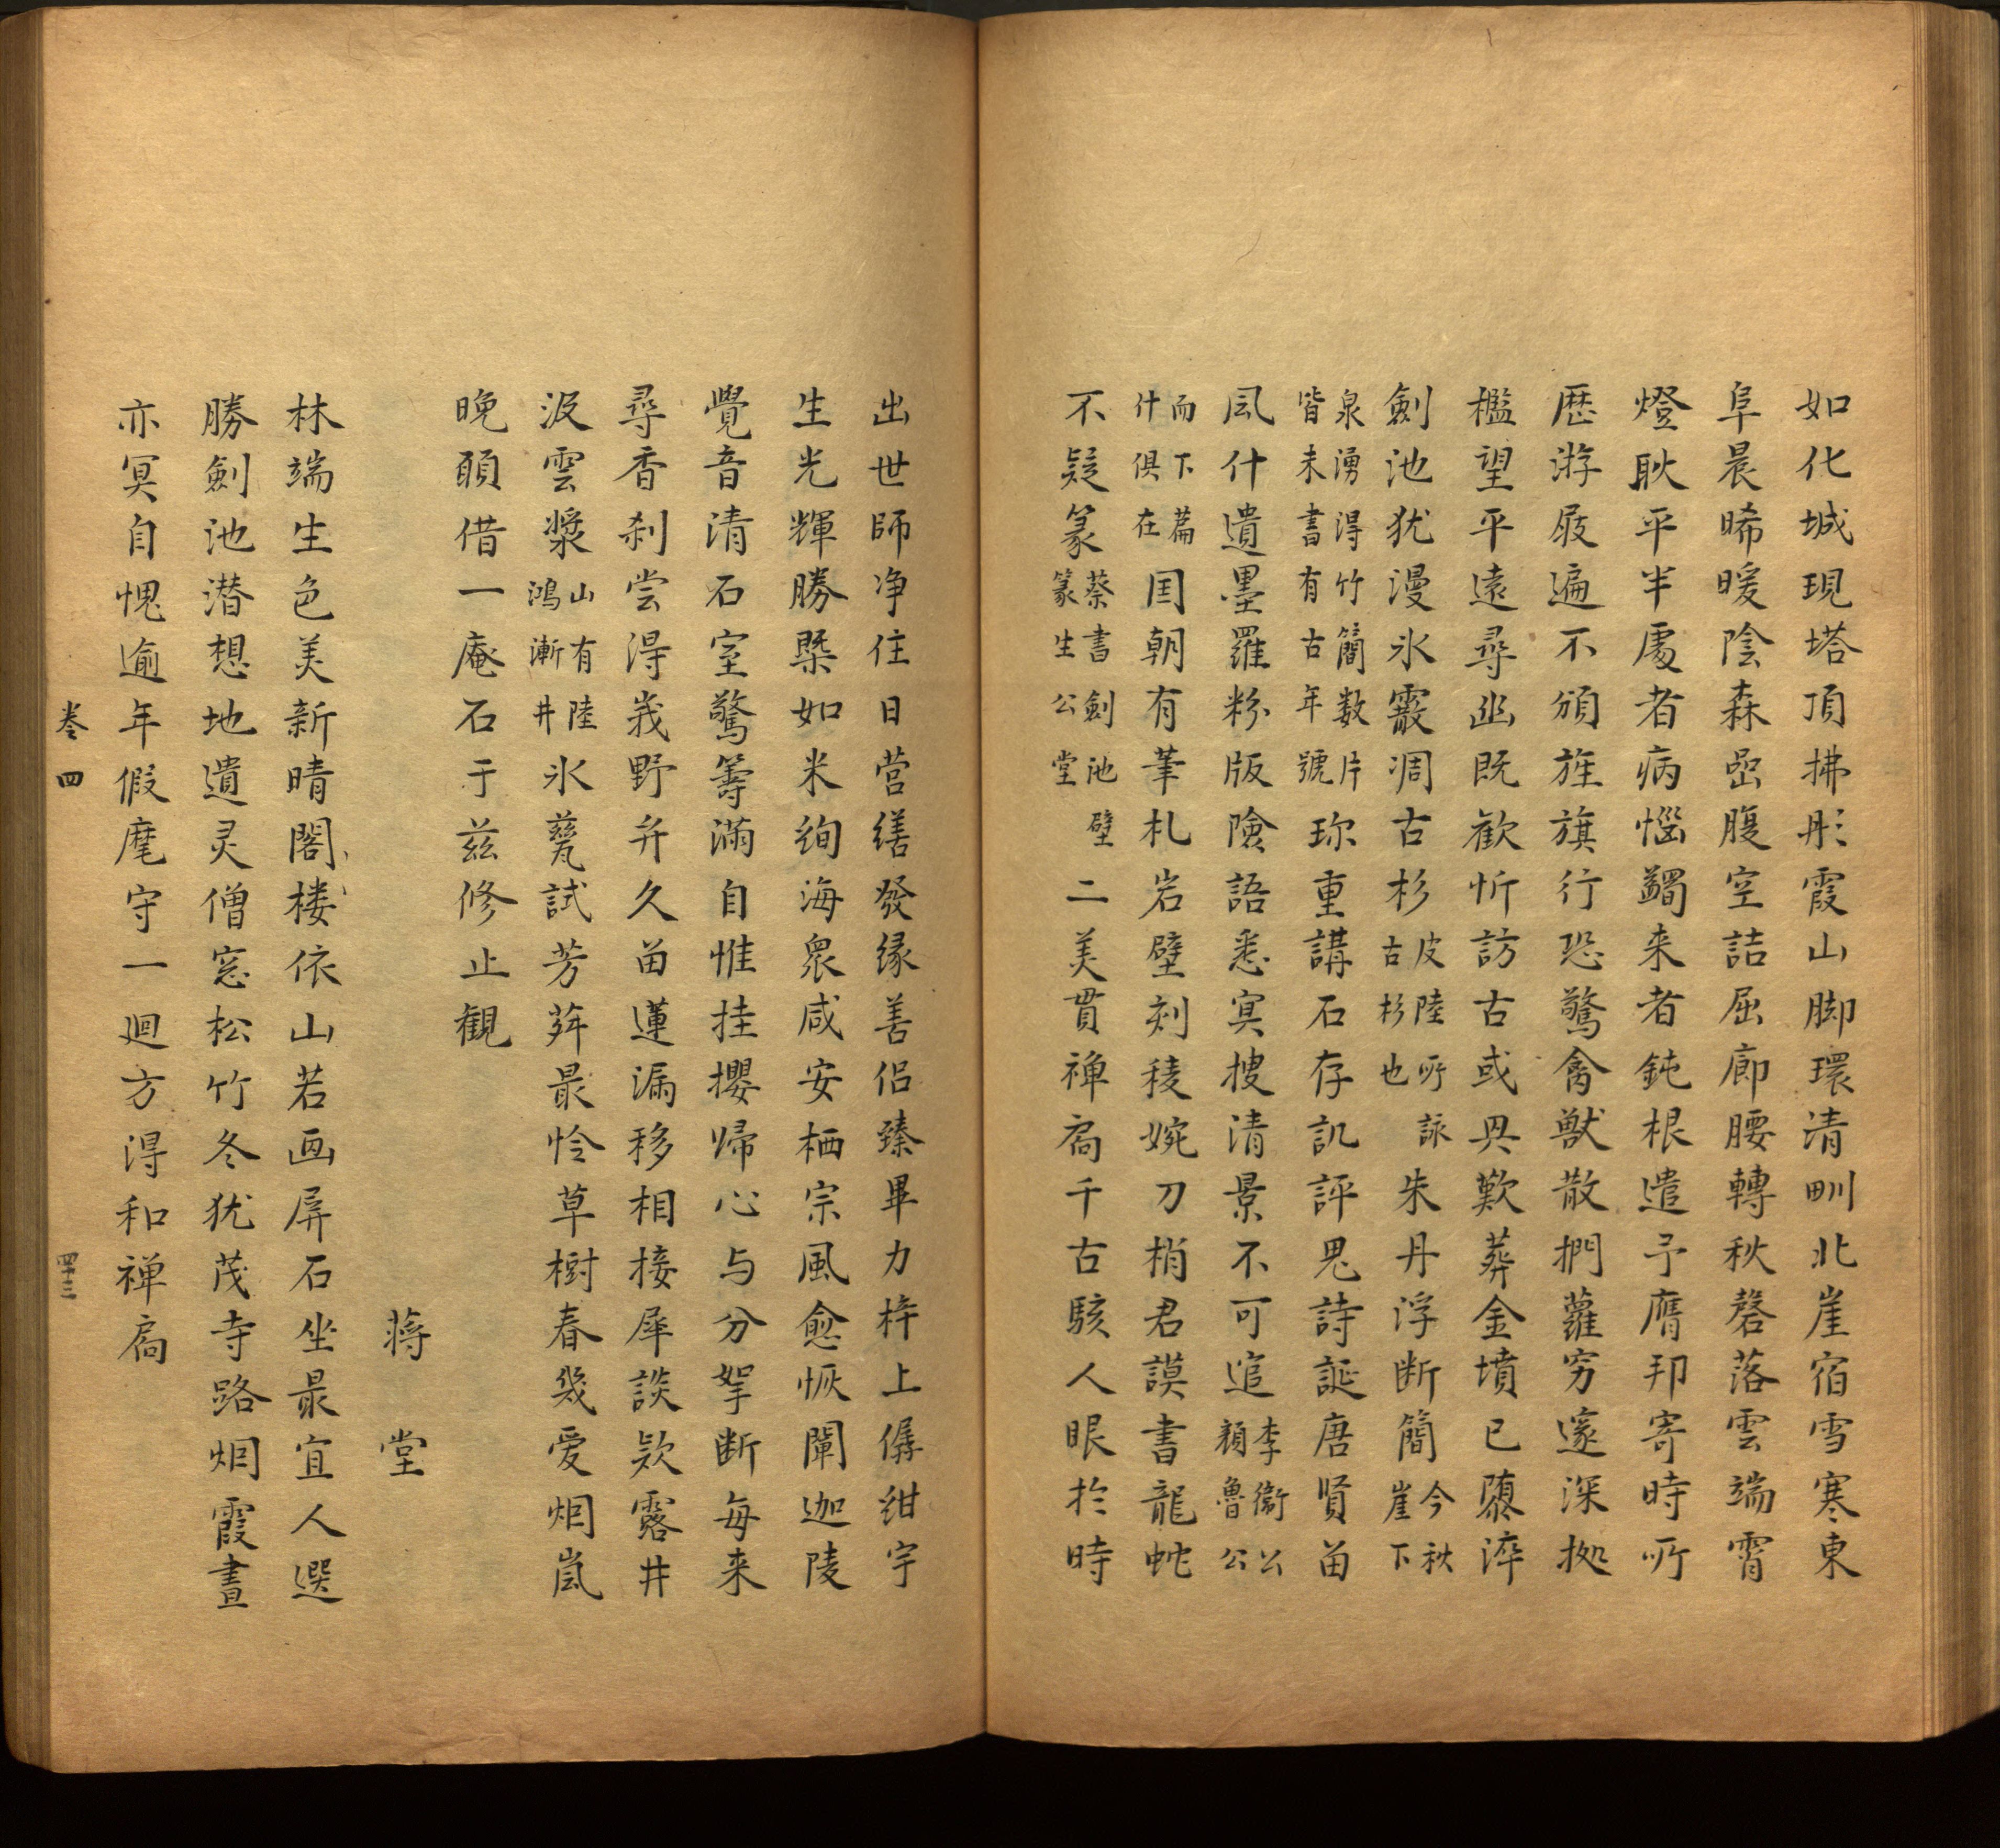 如化城現塔頂拂彤霞山脚環清甽北崖宿雪寒東
阜晨晞暖陰森嵒腹空詰屈廊腰轉秋磬落雲端霄
燈耿平半處者病惱蠲来者鈍根遣予膺邦寄時所
歴游屐遍不頒旌旗行恐驚禽獸散捫蘿穷邃深拠
檻望平遠尋幽既歡忻訪古或興歎葬金墳已隳淬
劍池犹漫氷霰凋古杉皮陸所詠古杉也朱丹浮断簡今秋崖下
泉湧得竹簡数片皆未書有古年號珎重講石存訊評鬼詩誕唐賢畱
風什遺墨羅粉版險語悉冥搜清景不可追李衞公顔魯公
而下篇什俱在囯朝有筆札岩壁刻稜婉刀梢君謨書龍虵
不疑篆蔡書劍池壁篆生公堂二美貫禅扃千古駭人眼於時
出世師净住日营缮發緣善侣臻畢力梓上僝绀宇
生光輝勝槩如米絢海衆咸安栖宗風愈恢闡迦陵
覺音清石室驚籌滿自惟挂攖㱕心与分挐断每来
尋香刹尝淂峩野弁久畱蓮漏移相接犀談欵露井
汲雲漿山有陸鴻漸井氷甆試芳荈最怜草樹春幾爱烟嵐
晚頋借一庵石于兹修止観
蒋堂
林端生色美新晴閣楼依山若画屏石坐最宜人選
勝劍池潜想地遺灵僧窓松竹冬犹茂寺路烟霞晝
亦冥自愧逾年假麾守一迴方淂和禅扃
卷四
四十三